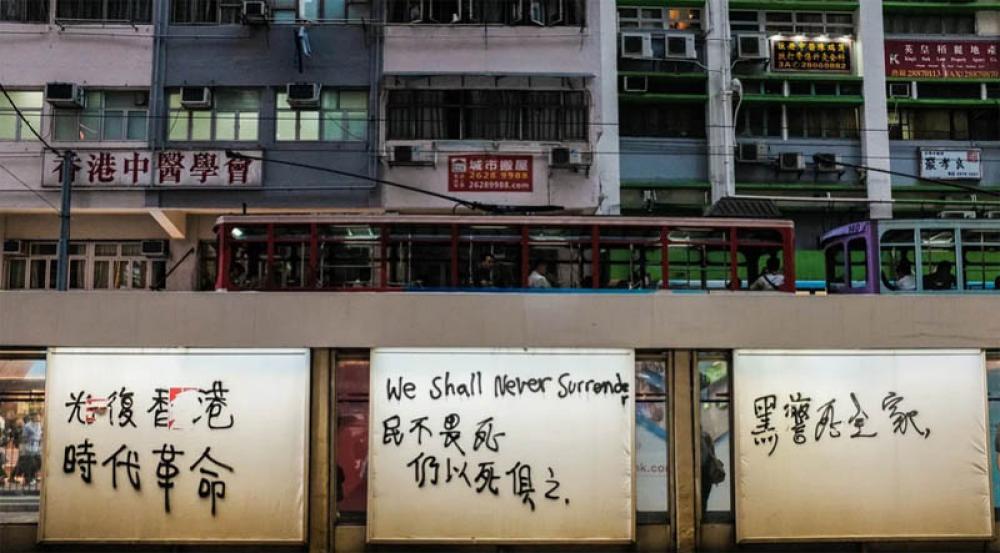 英皇栢麗地產
香港中醫學會
城市搬屋
2628 9988
26289988.com
光復香港
時代革命
We Shall Never Surrender
民不畏死
仍以死俱之.
黑警死全家,